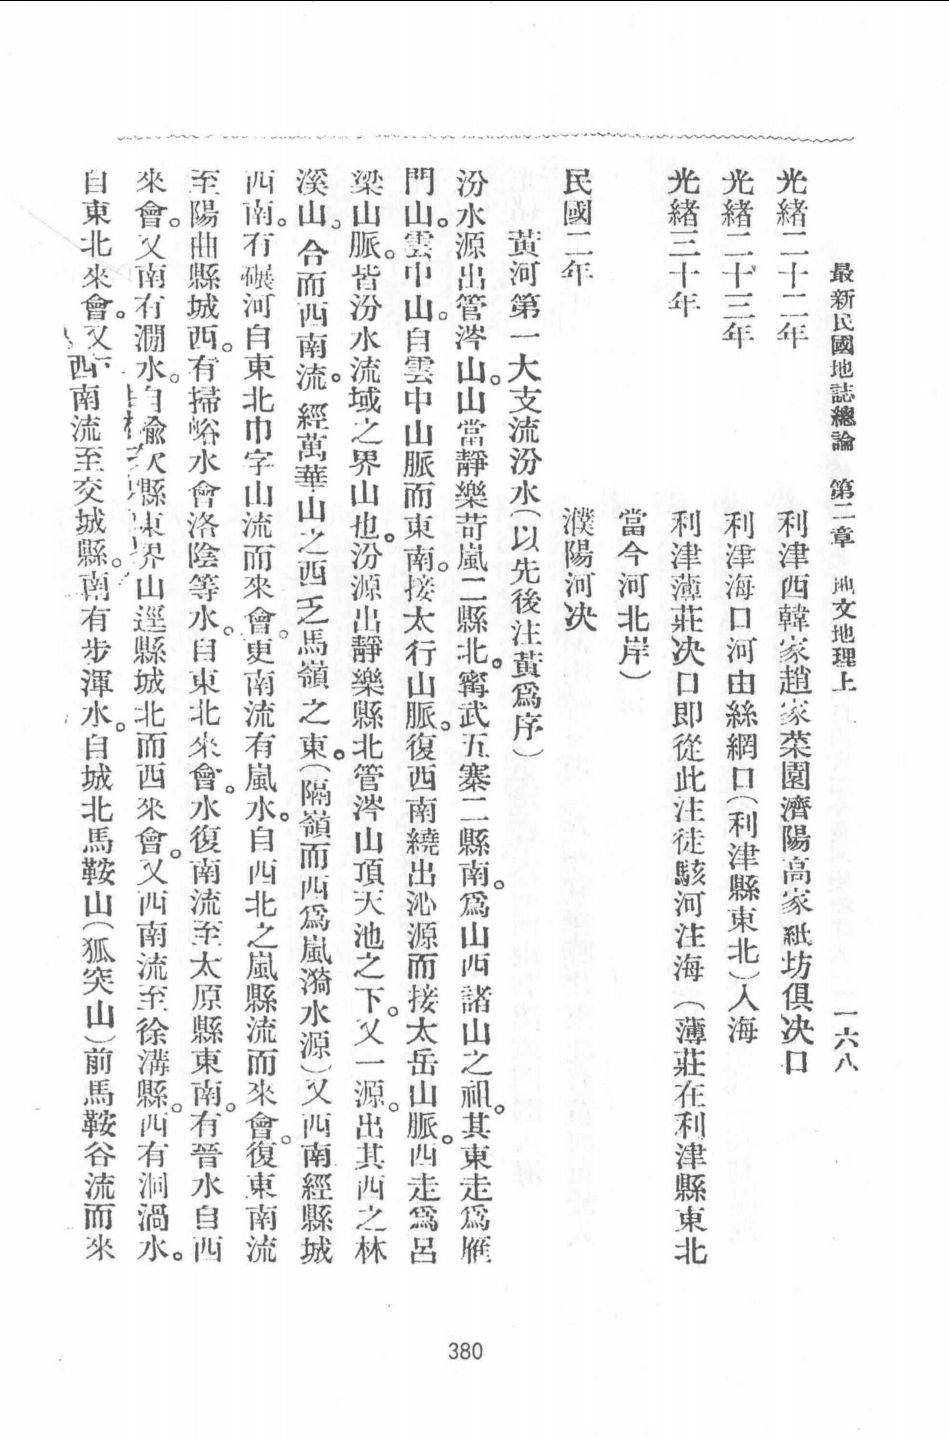 最新民國地誌總論 第二章 地文地理上 一六八
光緒二十二年 利津西韓家趙家菜園濟陽高家紙坊俱决口
光緒二十三年 利津海口河由絲網口(利津縣東北)入海
光緒三十年 利津薄莊决口即從此注徒駭河注海(薄莊在利津縣東北
當今河北岸)
民國二年 濮陽河决
黃河第一大支流汾水(以先後注黃爲序)
汾水源出管涔山。山當靜樂苛嵐二縣北。寗武五寨二縣南。爲山西諸山之祖。其東走爲雁
門山。雲中山。自雲中山脈而東南。接太行山脈。復西南繞出沁源而接太岳山脈。西走爲呂
梁山脈。皆汾水流域之界山也。汾源出靜樂縣北管涔山頂天池之下。又一源。出其西之林
溪山。合而西南流。經萬華山之西乏馬嶺之東。(隔嶺而西爲嵐漪水源)又西南經縣城
西南。有碾河自東北巾字山流而來會。更南流有嵐水。自西北之嵐縣流而來會。復東南流
至陽曲縣城西。有掃峪水會洛陰等水。自東北來會。水復南流至太原縣東南。有晉水自西
來會。又南有澗水。自榆次縣東界山逕縣城北而西來會。又西南流至徐溝縣。西有洞渦水。
自東北來會。又西南流至交城縣。南有步渾水。自城北馬鞍山(狐突山)前馬鞍谷流而來
380